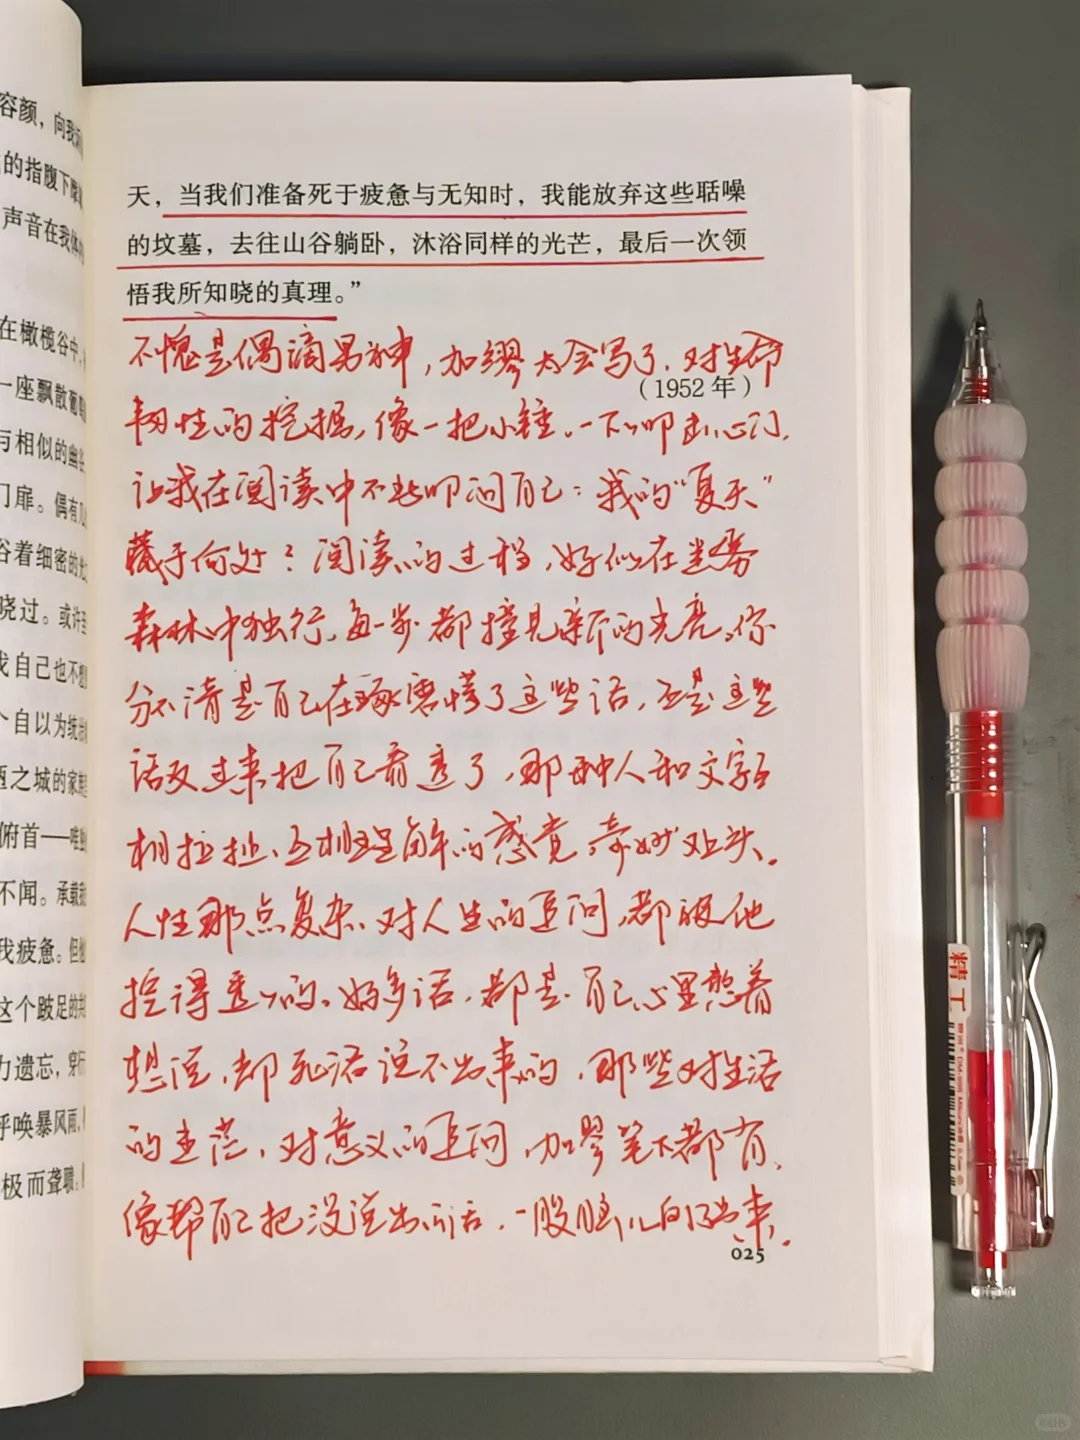 容颜，向我
的指腹下
声音在我体
在橄榄谷中，
一座飘散葡
与相似的幽谷
门扉。偶有几
谷着细密的光
晓过。或许
我自己也不
个自以为统治
之城的家
俯首——唯
不闻。承载我
我疲惫。但他
这个跛足的共
力遗忘，穿行
呼唤暴风雨，
极而聋聩，
天，当我们准备死于疲惫与无知时，我能放弃这些聒噪
的坟墓，去往山谷躺卧，沐浴同样的光芒，最后一次领
悟我所知晓的真理。”
不愧是偶滴男神，加缪太会写了，对生命
（1952年）
韧性的挖掘，像一把小锤，一下下叩击心门，
让我在阅读中不断叩问自己：我的“夏天”
藏于何处？阅读的过程，好似在迷雾
森林中独行，每一步都撞见新的光亮。你
分不清是自己在琢磨懂了这些话，还是这些
话反过来把自己看透了，那种人和文字
相拉扯、互相理解的感觉，奇妙过头。
人性那点复杂、对人生的追问，都被他
挖得透透的。好多话，都是自己心里憋着
想说，却死活说不出来的，那些对生活
的迷茫，对意义的追问，加缪笔下都有，
像帮自己把没说出的话，一股脑儿的倒出来。
025
精工